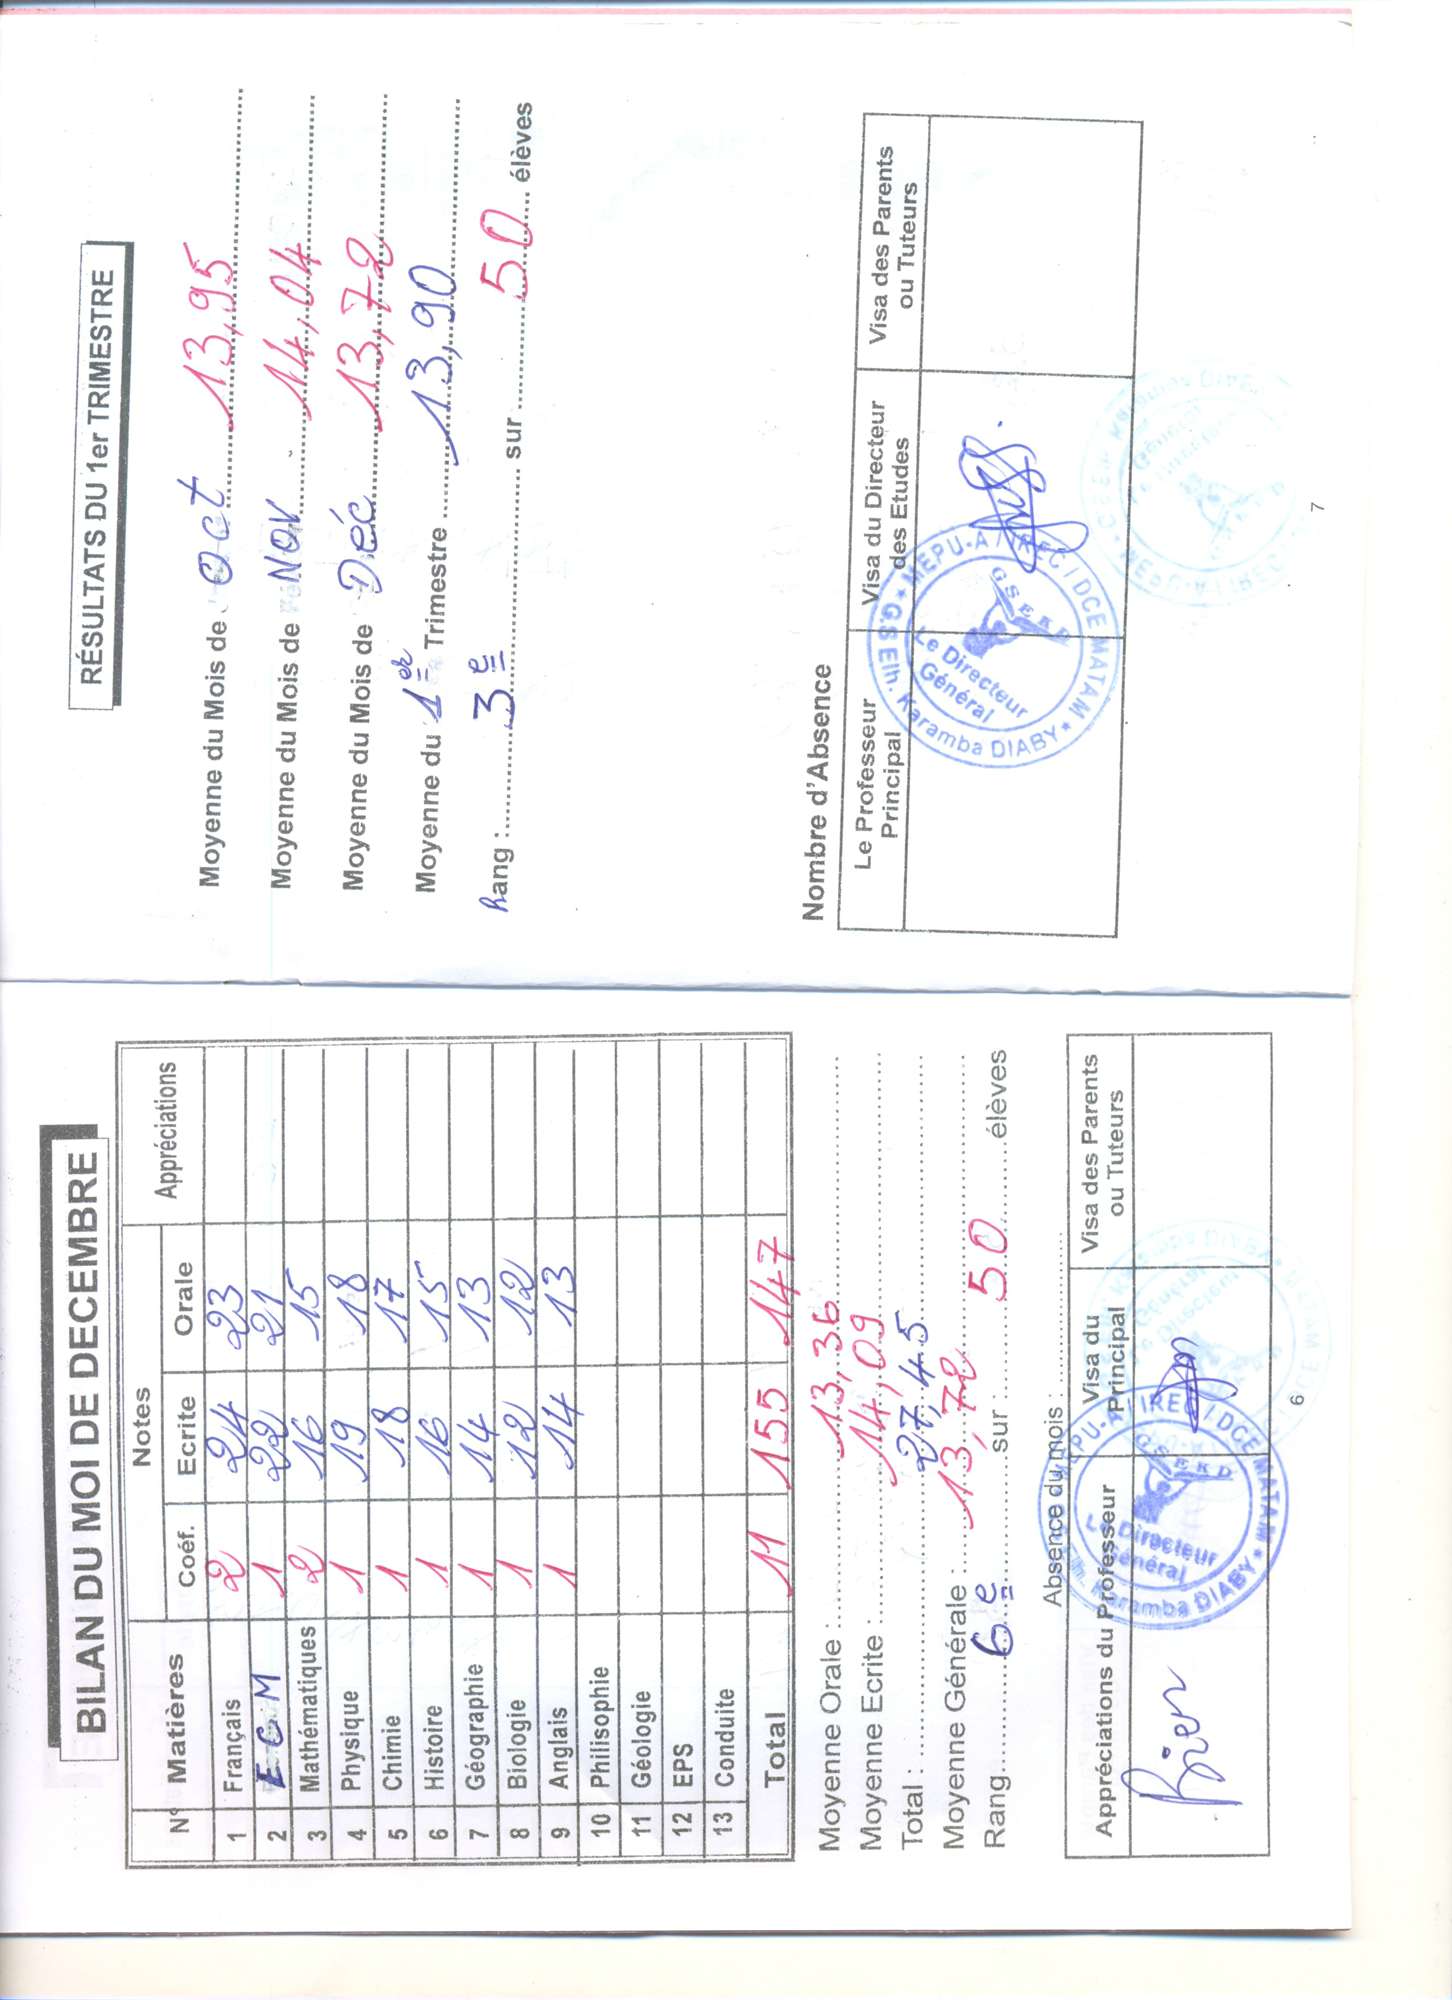 BILAN DU MOI DE DECEMBRE
N° Matières Notes Appréciations
Coéf. Ecrite Orale
1 Français 2 24 23
2 E C M 1 22 21
3 Mathématiques 2 16 15
4 Physique 1 19 18
5 Chimie 1 18 17
6 Histoire 1 16 15
7 Géographie 1 14 13
8 Biologie 1 12 12
9 Anglais 1 14 13
10 Philisophie
11 Géologie
12 EPS
13 Conduite
Total 11 155 147
Moyenne Orale : 13,36
Moyenne Ecrite : 14,09
Total : 27,45
Moyenne Générale : 13,72
Rang 6e sur 50 élèves
Absence du mois :
Appréciations du Professeur Visa du Principal Visa des Parents ou Tuteurs
Bien
MEPU-A / IREC / DCE MATAM
Elh. Karamba DIABY
Le Directeur
Général
GSEKD
6
RÉSULTATS DU 1er TRIMESTRE
Moyenne du Mois de Oct 13,95
Moyenne du Mois de Nov 14,04
Moyenne du Mois de Déc 13,72
Moyenne du 1er Trimestre 13,90
Rang : 3e sur 50 élèves
Nombre d'Absence
Le Professeur Principal Visa du Directeur des Etudes Visa des Parents ou Tuteurs
MEPU-A / IREC / DCE MATAM
G.S Elh. Karamba DIABY
Le Directeur
Général
GSEKD
7